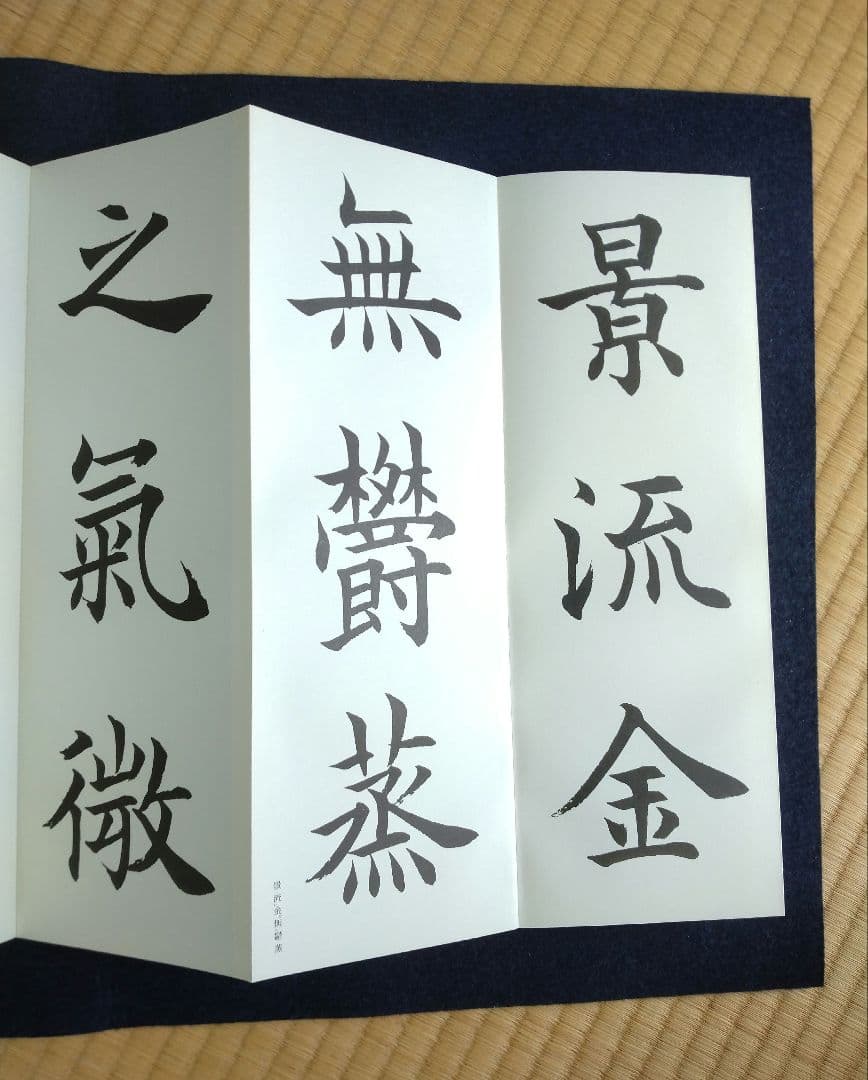 景流金
無鬱蒸
之氣微
景流金無鬱蒸